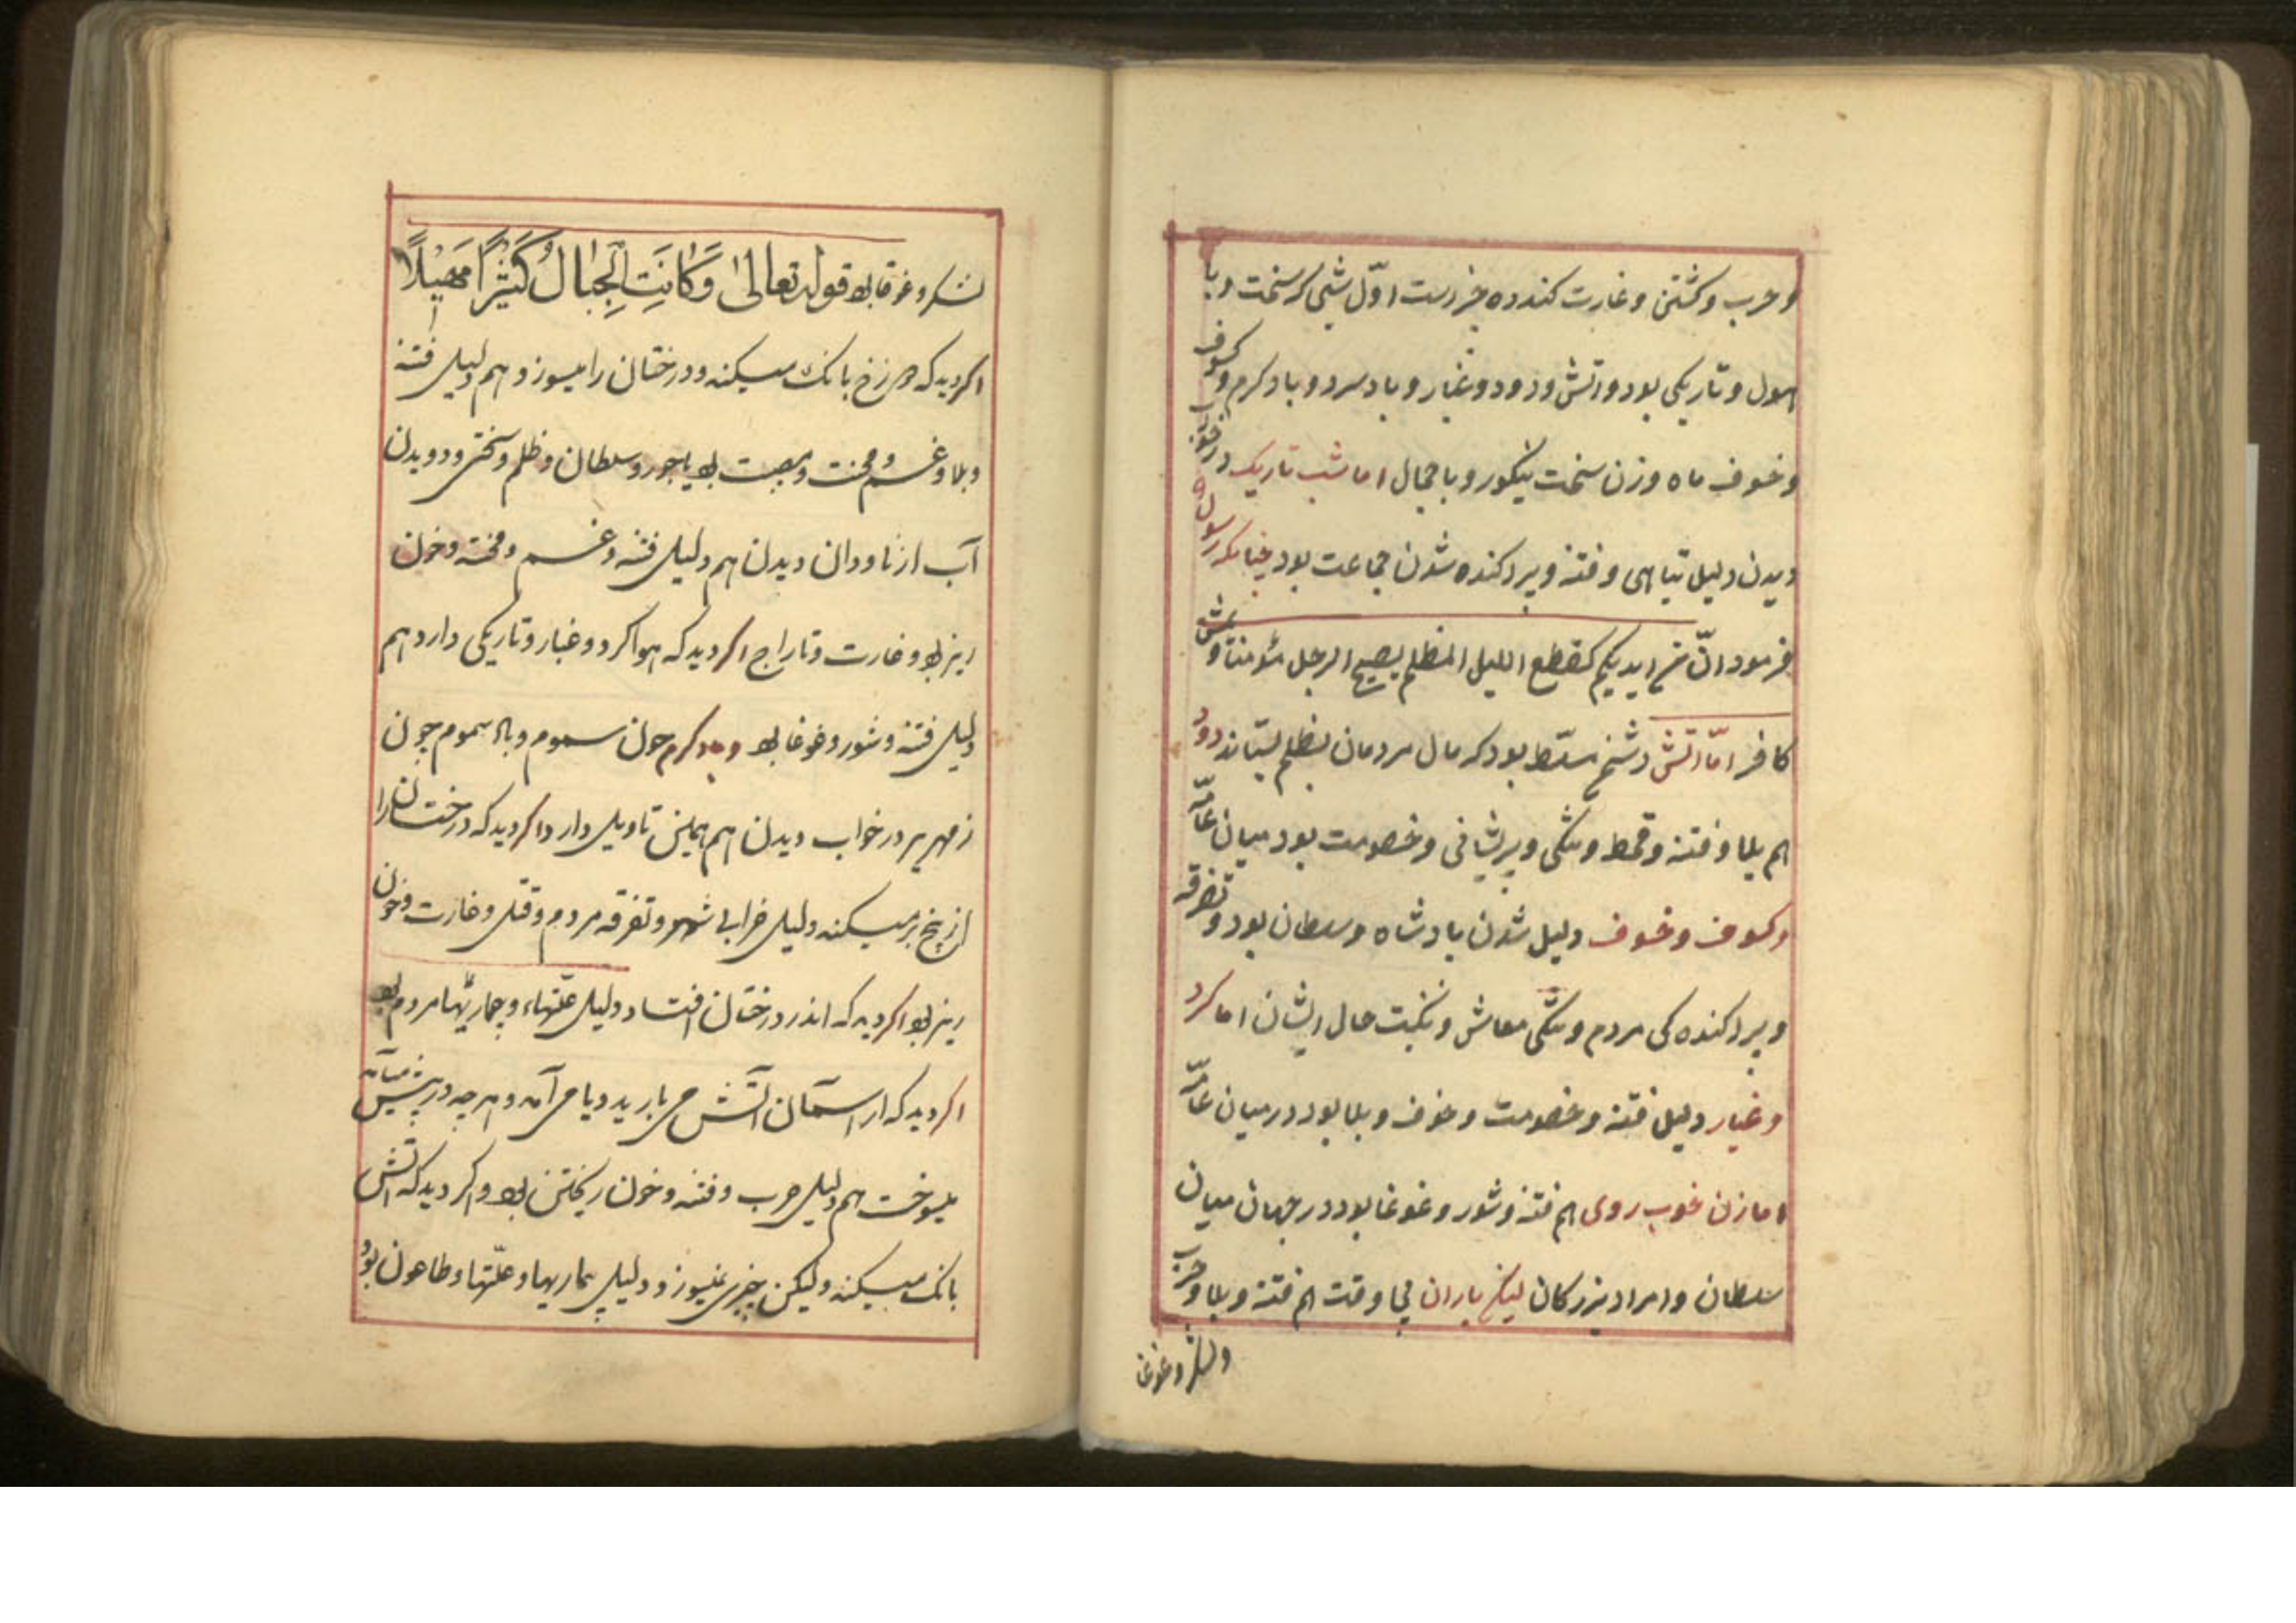 و حرب و کشتن و غارت کننده ده چیزست اوّل شبی که سخت و با
هول و تاریکی بود و اتش و دود و غبار و باد سرد و باد کرم و کسوف
و خسوف ماه و زن سخت نیکو رو با جمال اما شب تاریک در خواب
دیدن دلیل تباهی و فتنه و پرا کنده شدن جماعت بود چنانکه رسول
فرمود انّ بین ایدیکم کقطع اللیل المظلم یصبح الرجل مؤمنًا و یمشی
کافر امّا اتش دشمن مسلّط بود که مال مردمان بظلم بستاند دود
هم بلا و فتنه و قحط و تنکی و پریشانی و خصومت بود میان عامّه
و کسوف و خسوف دلیل شدن پادشاه و سلطان بود و تفرقه
و پرا کنده کی مردم و تنکی معاش و نکبت حال ایشان اما کرد
و غبار دلیل فتنه و خصومت و خوف و بلا بود در میان عامّه
اما زن خوب روی هم فتنه و شور و غوغا بود در جهان میان
سلطان و امرا و بزرکان لیکن باران بی وقت هم فتنه و بلا و حرب
و لشکر و غوغا
لشکر و غوغا بود قوله تعالی وَکَانَتِ الْجِبَالُ کَثِیْرًا مَهِیْلًا
اکر دید که بانک میکند و درختان را میسوزد هم دلیل فتنه
و بلا و غم و محنت و مصیبت بود یا جور و سلطان و ظلم و سختی و دویدن
آب از ناودان دیدن هم دلیل فتنه و غم و محنت و خون
ریز بود و غارت و تاراج اکر دید که هوا کرد و غبار و تاریکی دارد هم
دلیل فتنه و شور و غوغا بود و باد کرم چون سموم و باد سموم چون
زمهریر در خواب دیدن هم همین تاویل دارد اکر دید که درختان را
از بیخ بر میکند دلیل خرابی شهر و تفرقه مردم و قتل و غارت و خون
ریز بود اکر دید که اندر درختان افتاد دلیل علّتهاء و بیماریها مردم بود
اکر دید که از آسمان آتش می بارید و یا می آمد و هر چه در پیش میآمد
میسوخت هم دلیل حرب و فتنه و خون ریختن بود و اکر دید که آتش
بانک میکند و لیکن چیزی نمیسوزد دلیل بیماریها و علّتها و طاعون بود